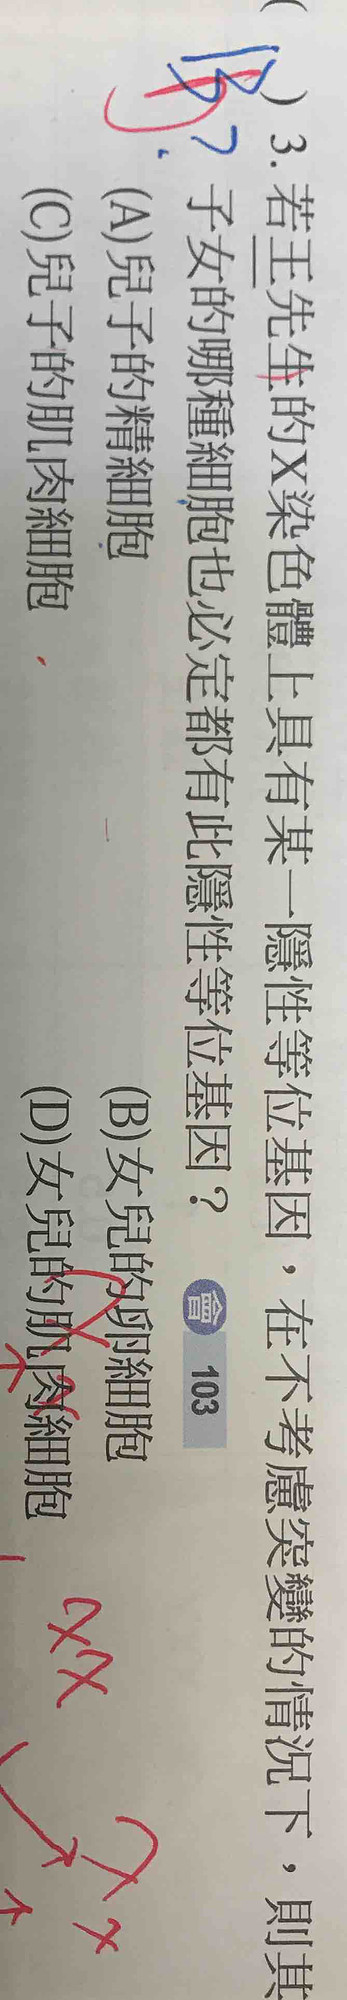 ( B ) 3. 若王先生的X染色體上具有某一隱性等位基因，在不考慮突變的情況下，則其
? 子女的哪種細胞也必定都有此隱性等位基因？ 會 103
(A)兒子的精細胞 (B)女兒的卵細胞
(C)兒子的肌肉細胞 (D)女兒的肌肉細胞
XX
XX